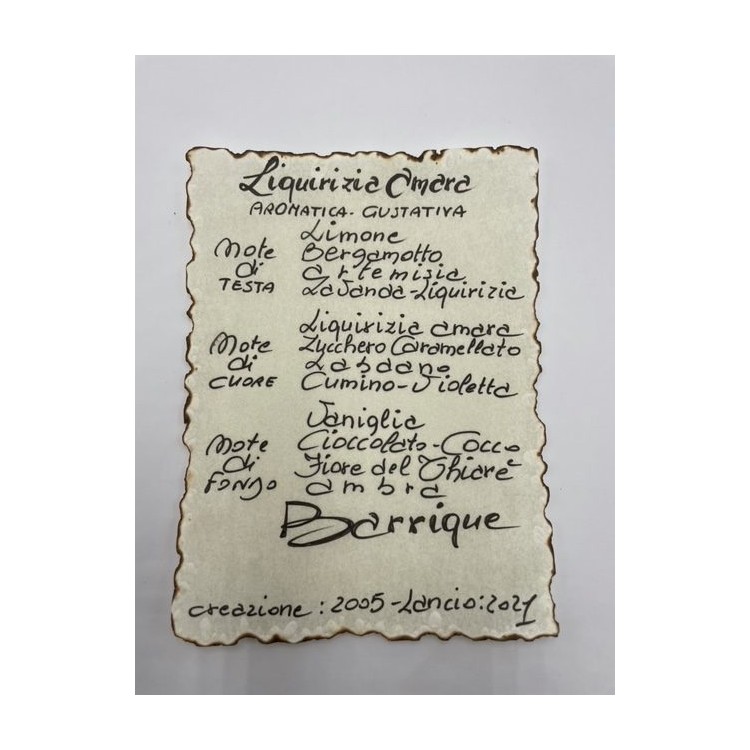 Liquirizia Amara
AROMATICA - GUSTATIVA
Note di TESTA
Limone
Bergamotto
artemisia
Lavanda - Liquirizia
Note di CUORE
Liquirizia amara
Zucchero Caramellato
Labdano
Cumino - Violetta
Note di FONDO
Vaniglia
Cioccolato - Cocco
Fiore del Thiarè
ambra
Barrique
creazione: 2005 - Lancio: 2021